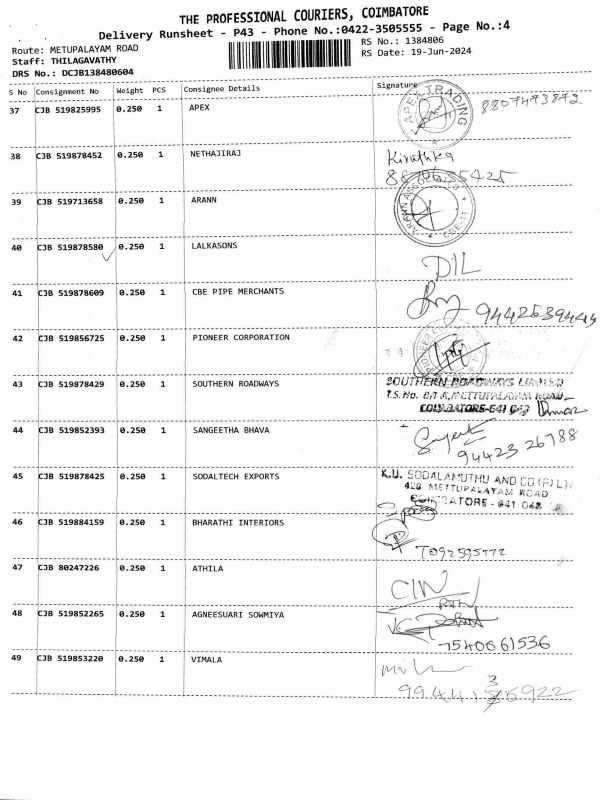 THE PROFESSIONAL COURIERS, COIMBATORE
Delivery Runsheet - P43 - Phone No.:0422-3505555 - Page No.:4
Route: METUPALAYAM ROAD
RS No.: 1384806
Staff: THILAGAVATHY
RS Date: 19-Jun-2024
DRS No.: DCJB138480604
S No Consignment No Weight PCS Consignee Details Signature
37 CJB 519825995 0.250 1 APEX
APEX TRADING
8807493872
38 CJB 519878452 0.250 1 NETHAJIRAJ Kiruthika
39 CJB 519713658 0.250 1 ARANN
40 CJB 519878580 0.250 1 LALKASONS
DIL
41 CJB 519878609 0.250 1 CBE PIPE MERCHANTS
42 CJB 519856725 0.250 1 PIONEER CORPORATION
43 CJB 519878429 0.250 1 SOUTHERN ROADWAYS SOUTHERN ROADWAYS LIMITED
METTUPALAYAM ROAD
COIMBATORE-641 043 Kumar
44 CJB 519852393 0.250 1 SANGEETHA BHAVA
94423 26788
45 CJB 519878425 0.250 1 SODALTECH EXPORTS K.U. SODALAMUTHU AND CO (P) LTD
428 METTUPALAYAM ROAD
COIMBATORE - 641 043
46 CJB 519884159 0.250 1 BHARATHI INTERIORS
47 CJB 80247226 0.250 1 ATHILA
48 CJB 519852265 0.250 1 AGNEESUARI SOWMIYA
7540061536
49 CJB 519853220 0.250 1 VIMALA